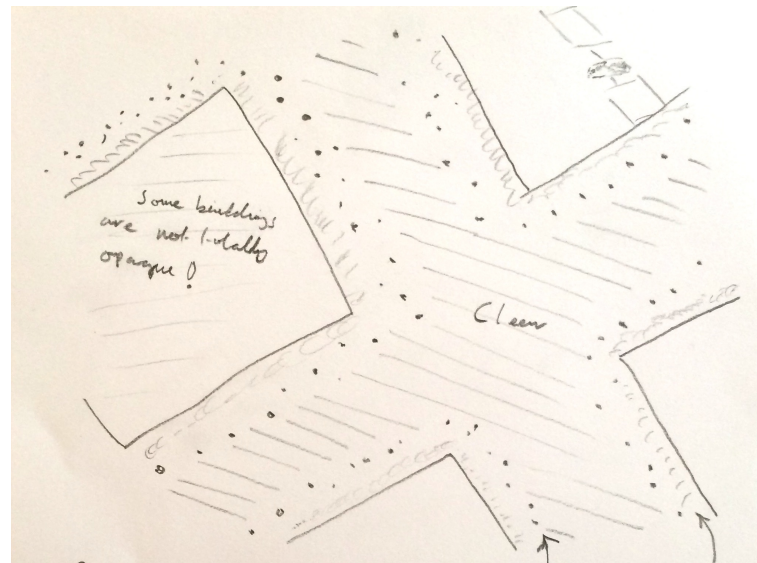 Some buildings
are not totally
opaque!
Clear